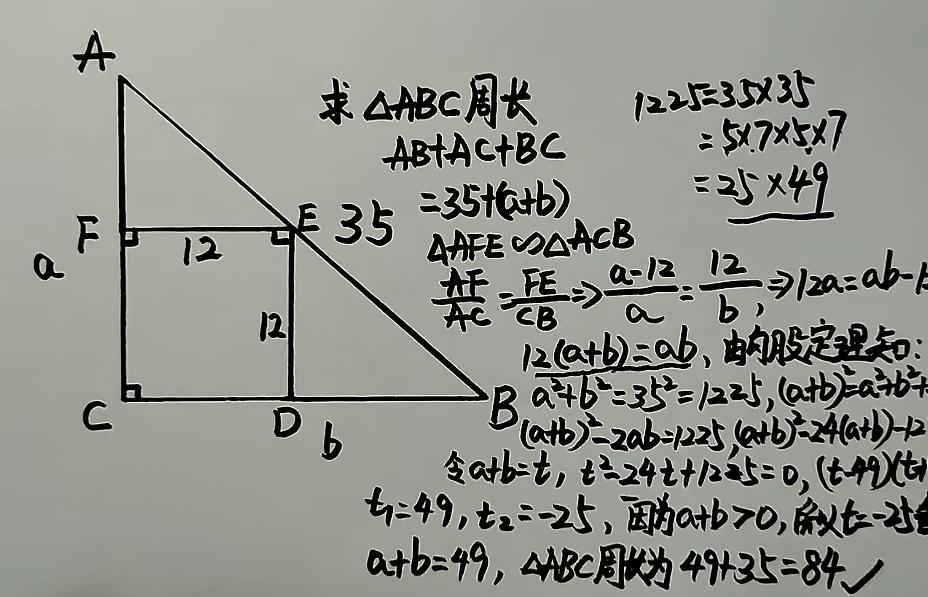 A
F
E
12
35
a
12
C
D
B
b
求 △ABC 周长
AB+AC+BC
=35+(a+b)
△AFE∽△ACB
AF/AC=FE/CB⇒a-12/a=12/b,⇒12a=ab-1
12(a+b)=ab、由勾股定理知:
a²+b²=35²=1225,(a+b)²=a²+b²+
(a+b)²-2ab=1225,(a+b)²-24(a+b)-12
令a+b=t, t²-24t+1225=0,(t-49)(t+
t₁=49, t₂=-25、因为a+b>0,所以t=-25舍
a+b=49, △ABC周长为 49+35=84✓
1225=35×35
=5×7×5×7
=25×49